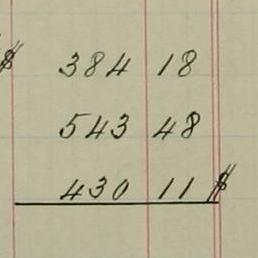 $ 384 18
543 48
430 11 $